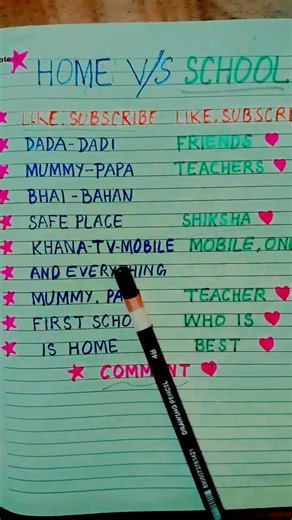 HOME V/S SCHOOL
LIKE, SUBSCRIBE LIKE, SUBSCRI
DADA-DADI FRIENDS
MUMMY-PAPA TEACHERS
BHAI-BAHAN
SAFE PLACE SHIKSHA
KHANA-TV-MOBILE MOBILE, ONL
AND EVERYTHING
MUMMY, PA TEACHER
FIRST SCHO WHO IS
IS HOME BEST
COMMENT
DRAWING PENCIL 4H